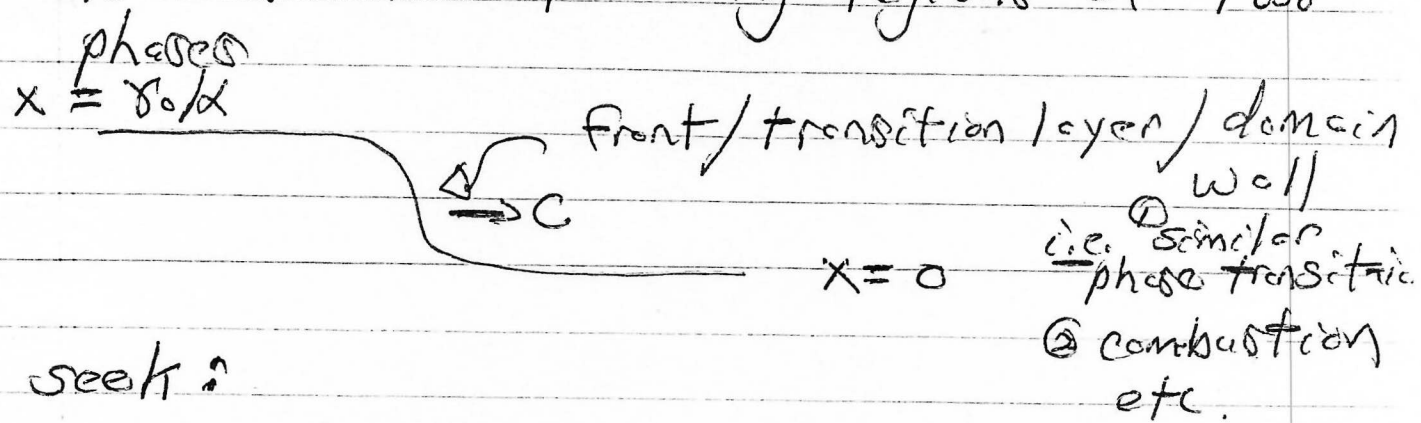 phases
x = γ₀/α
front/transition layer/domain
wall
→ C
i.e. ① similar
x = 0
phase transition
② combustion
seek:
etc.